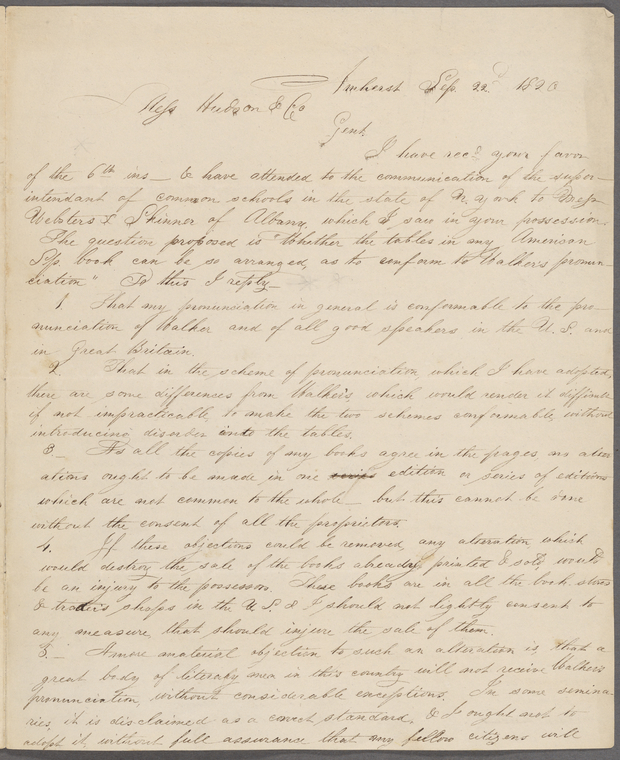 Amherst Sep. 22d 1820
Messs Hudson & Co
Gent.
I have recd your favor
of the 6th ins — & have attended to the communication of the super-
intendant of common schools in the state of N. York to Mess
Websters & Skinner of Albany, which I saw in your possession.
The question proposed is "Whether the tables in my American
Spg book can be so arranged, as to conform to Walker's pronun
ciation" To this I reply
1. That my pronunciation in general is conformable to the pro-
nunciation of Walker and of all good speakers in the U. S. and
in Great Britain.
2. That in the scheme of pronunciation which I have adopted,
there are some differences from Walker's which would render it difficult
if not impracticable, to make the two schemes conformable, without
introducing disorder into the tables.
3. — As all the copies of my books agree in the pages no alter
ations ought to be made in one series edition or series of editions
which are not common to the whole — but this cannot be done
without the consent of all the proprietors.
4. If these objections could be removed, any alteration which
would destroy the sale of the books already printed & sold, would
be an injury to the possessors. These books are in all the book stores
& trader's shops in the U S & I should not lightly consent to
any measure, that should injure the sale of them.
5. — A more material objection to such an alteration is, that a
great body of literary men in this country will not recieve Walkers
pronunciation, without considerable exceptions. In some semina-
ries, it is disclaimed as a correct standard, & I ought not to
adopt it, without full assurance that my fellow citizens will